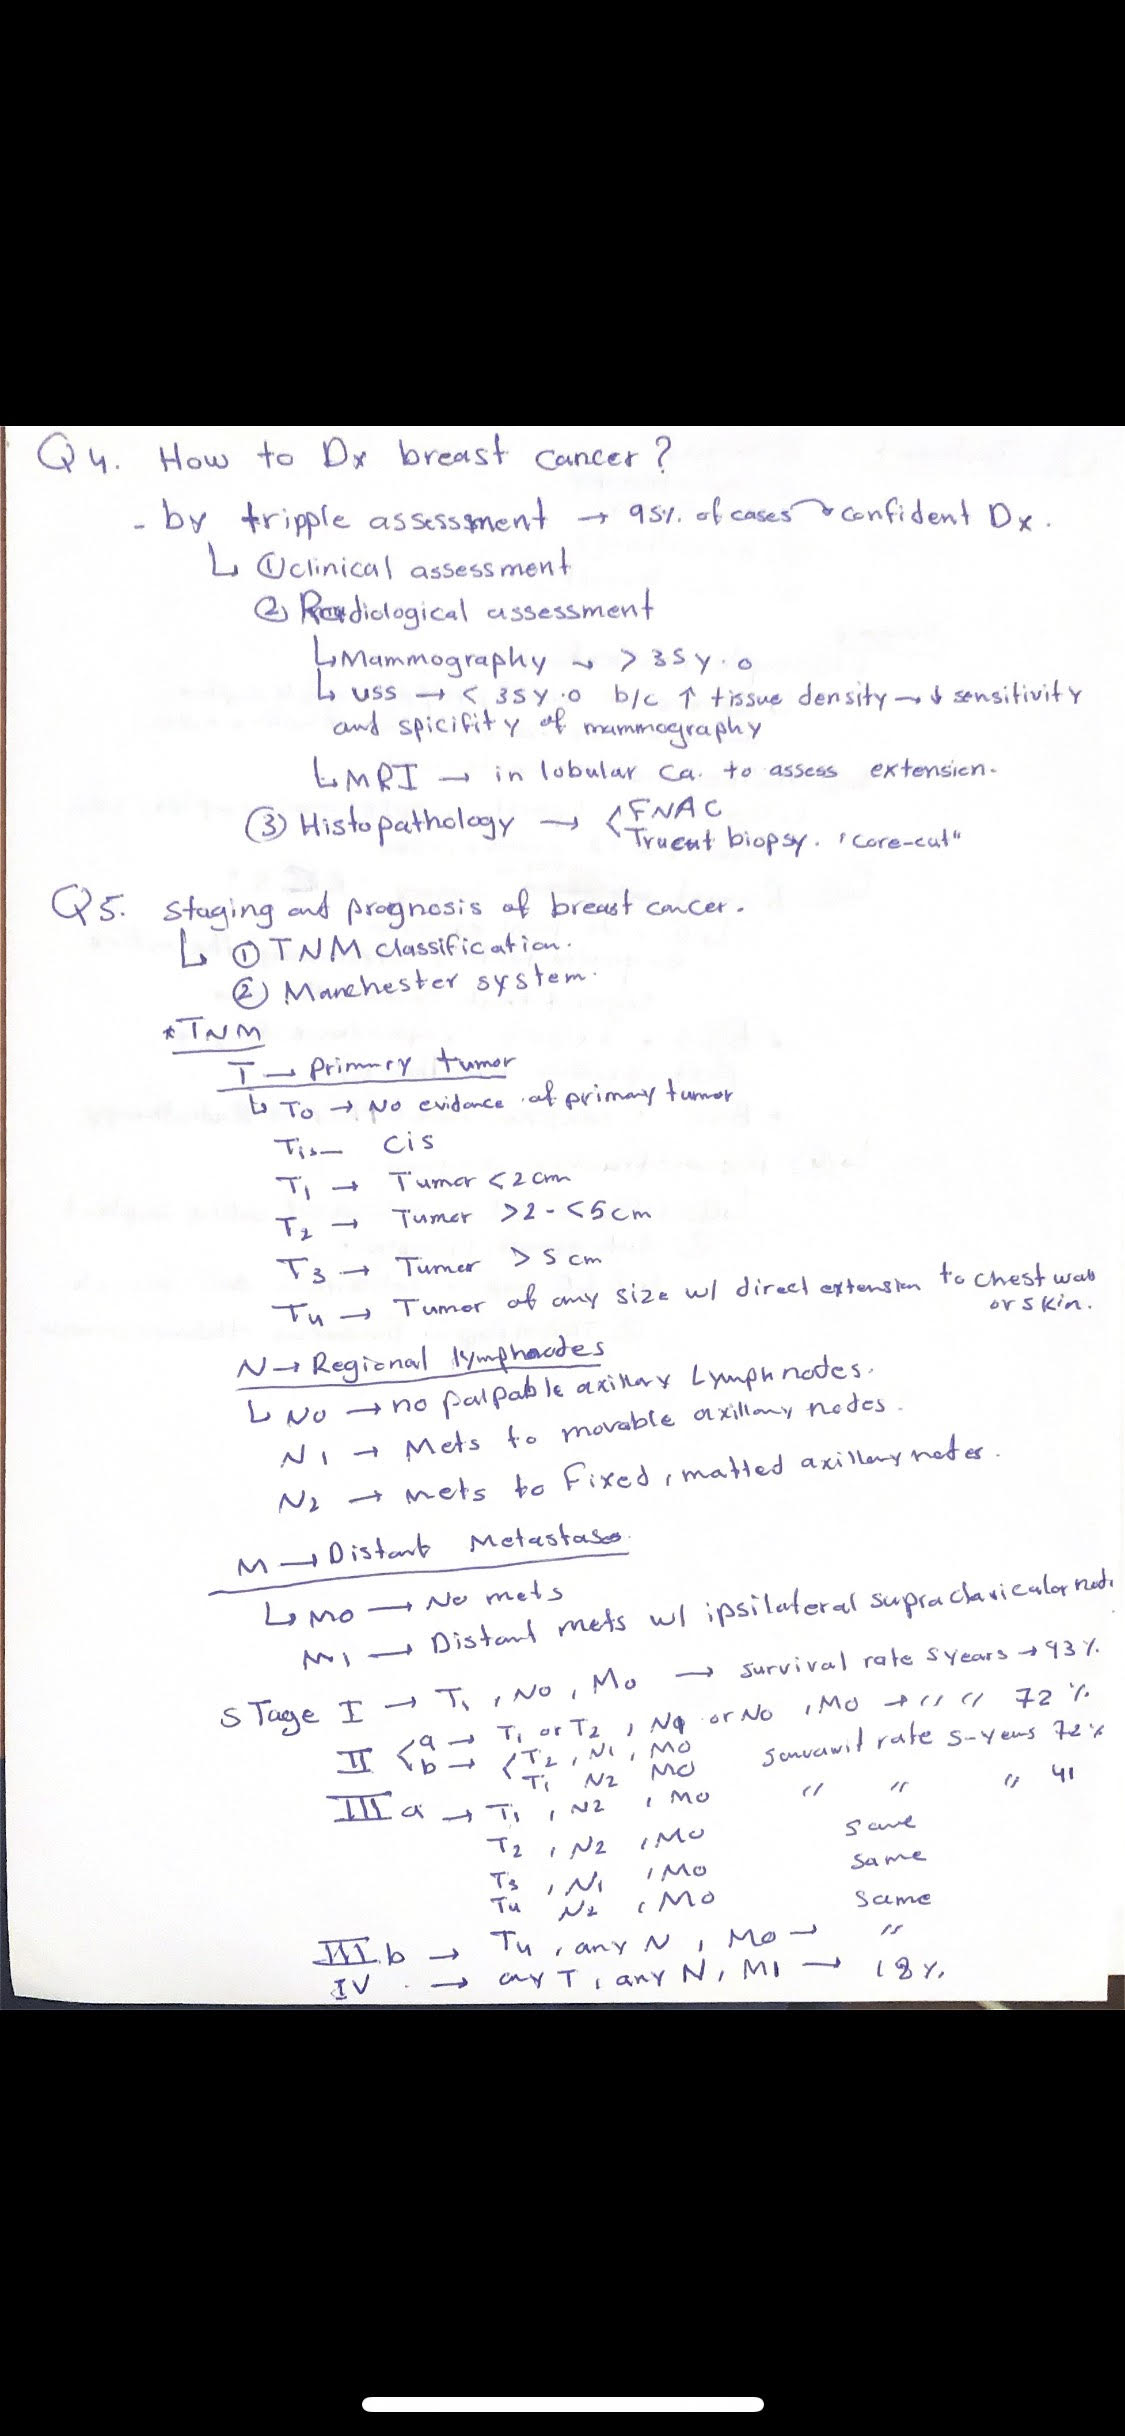 Q4. How to Dx breast cancer?
- by tripple assessment → 95% of cases → confident Dx.
↳ ① clinical assessment
② Radiological assessment
↳ Mammography → > 35 y.o
↳ USS → < 35 y.o b/c ↑ tissue density → ↓ sensitivity
and spicifity of mammography
↳ MRI → in lobular ca. to assess extension.
③ Histopathology → < FNAC
Trucut biopsy. "core-cut"
Q5. Staging and prognosis of breast cancer.
↳ ① TNM classification.
② Manchester system.
* TNM
T → primary tumor
↳ T0 → No evidence of primary tumor
Tis → cis
T1 → Tumor < 2 cm
T2 → Tumor > 2 - < 5 cm
T3 → Tumor > 5 cm
T4 → Tumor of any size w/ direct extension to chest wall
or skin.
N → Regional lymphnodes
↳ N0 → no palpable axillary Lymph nodes.
N1 → Mets to movable axillary nodes.
N2 → Mets to Fixed, matted axillary nodes.
M → Distant Metastases.
↳ M0 → No mets
M1 → Distant mets w/ ipsilateral supraclavicular node
STage I → T1, N0, M0 → survival rate 5 years → 93%.
II < a → T1 or T2, N1 or N0, M0 → " " 72%
b → < T2, N1, M0 rate 5-years 72%
T1 N2 M0
III a → T1, N2, M0 " " " 41
T2, N2, M0 same
T3, N1, M0 same
T4 N2, M0 same
III b → T4, any N, M0 → "
IV → any T, any N, M1 → 18%.